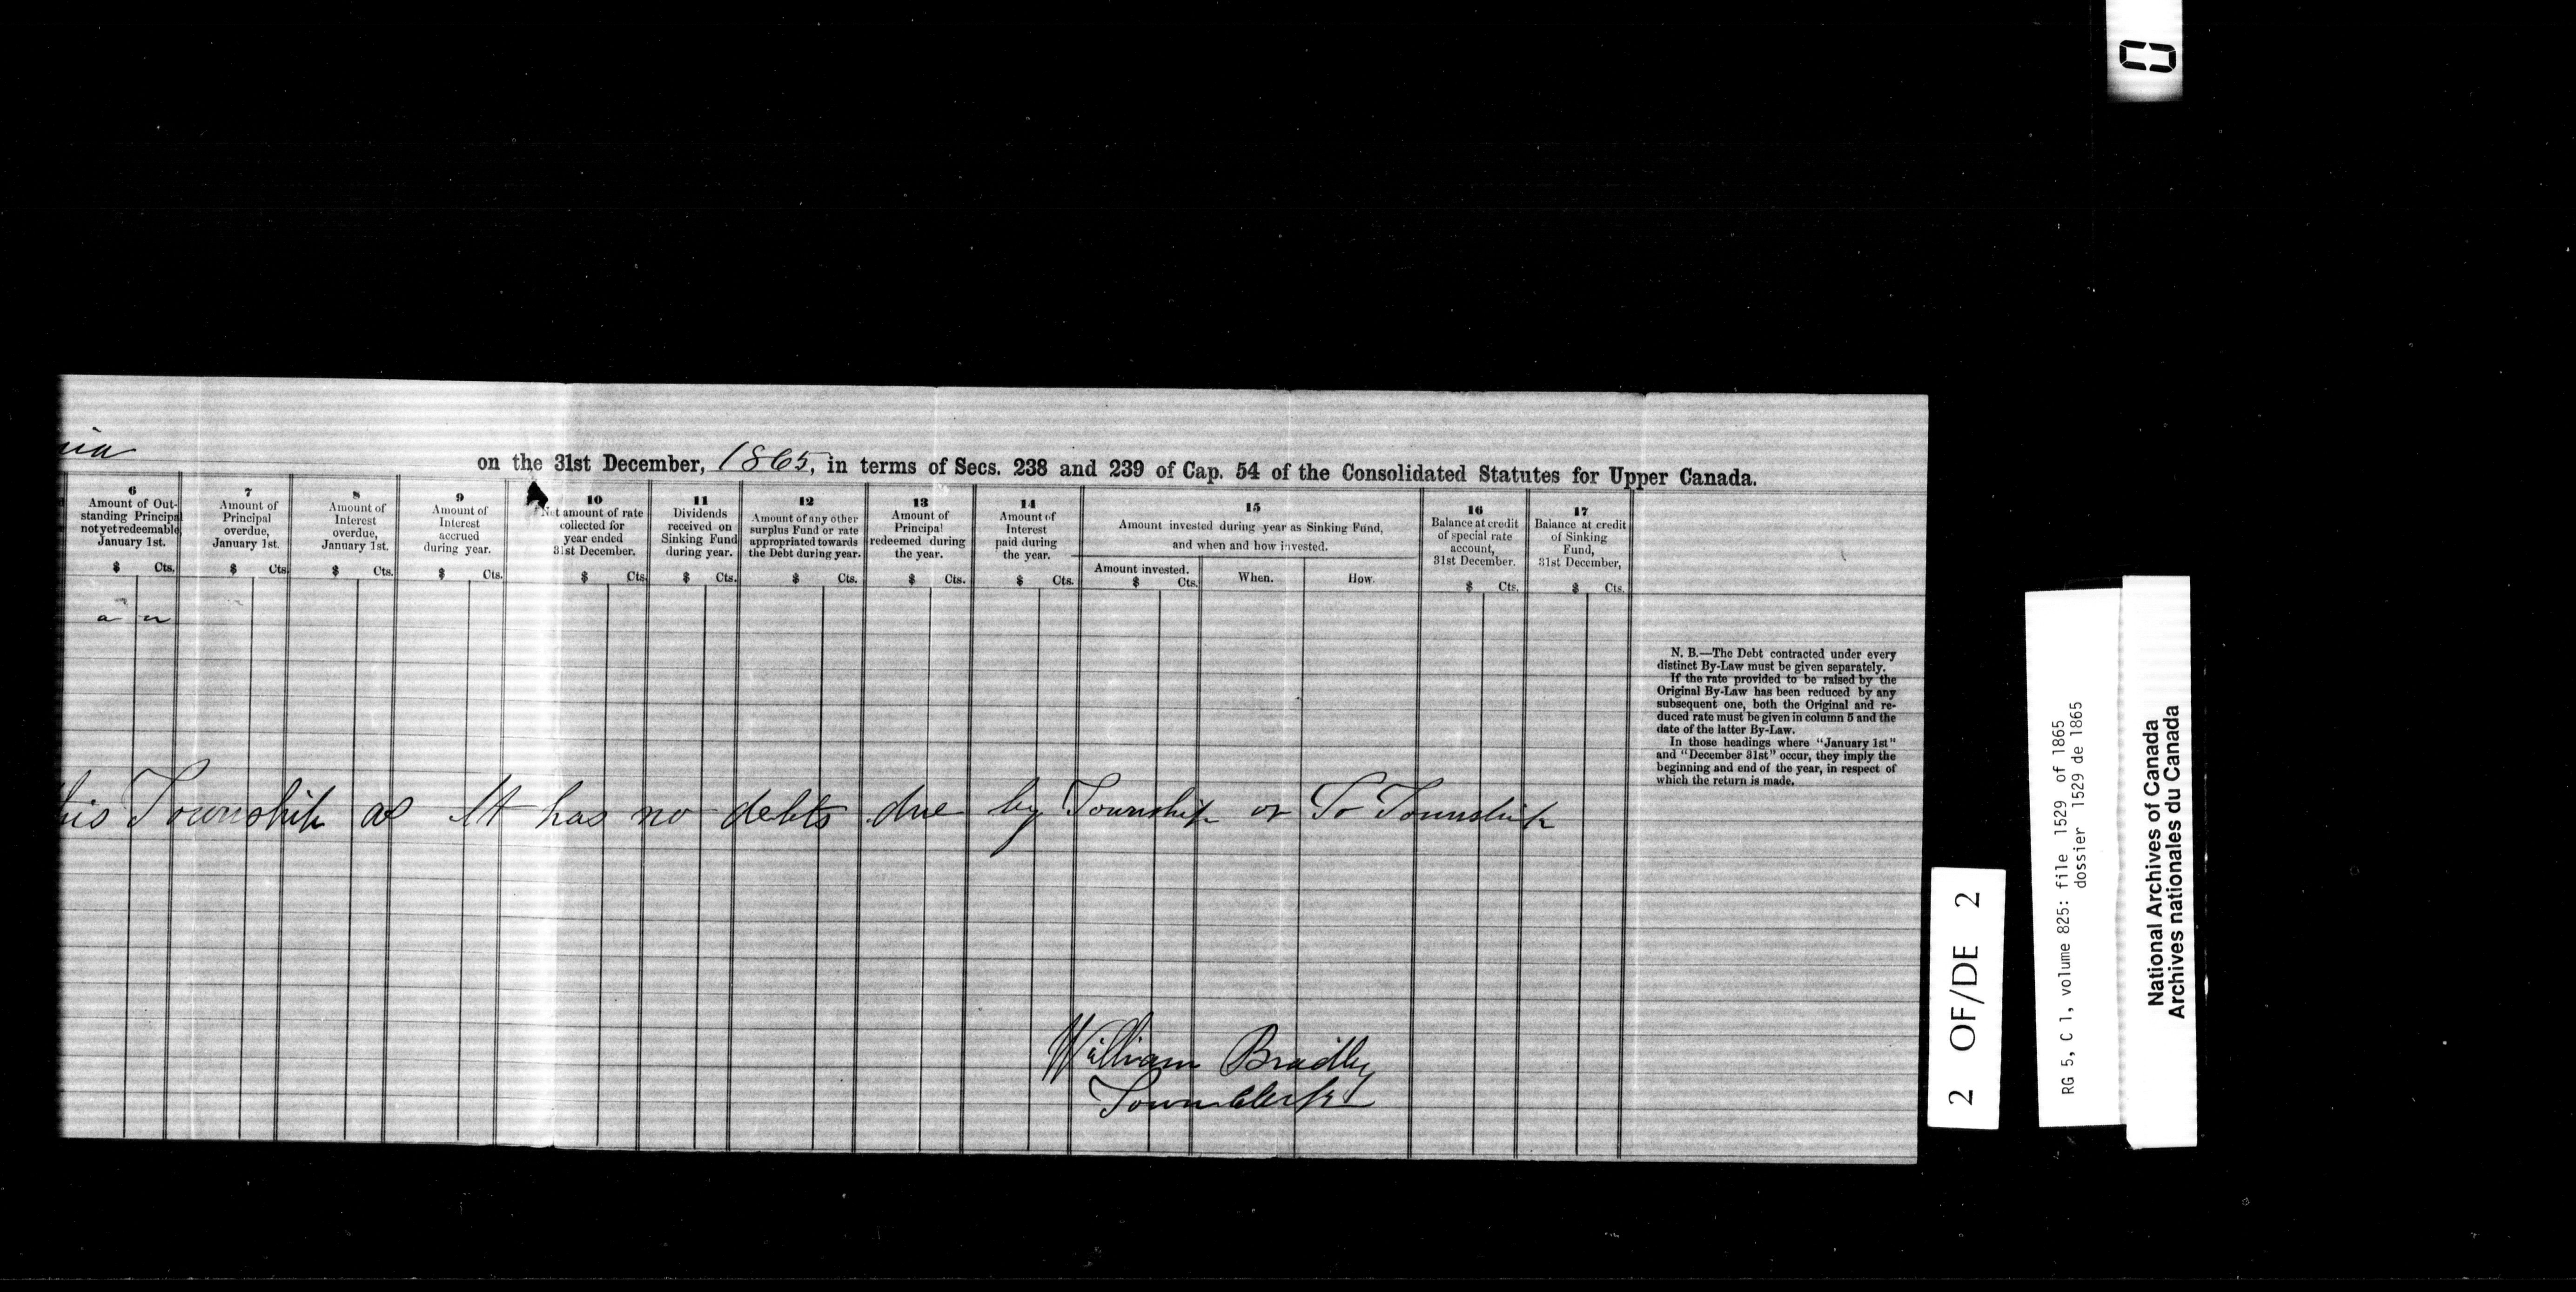 on the 31st December, 1865, in terms of Secs. 238 and 239 of Cap. 54 of the Consolidated Statutes for Upper Canada.
6
Amount of Out-
standing Principal
not yet redeemable,
January 1st.
$ Cts.
7
Amount of
Principal
overdue,
January 1st.
$ Cts.
8
Amount of
Interest
overdue,
January 1st.
$ Cts.
9
Amount of
Interest
accrued
during year.
$ Cts.
10
Net amount of rate
collected for
year ended
31st December.
$ Cts.
11
Dividends
received on
Sinking Fund
during year.
$ Cts.
12
Amount of any other
surplus Fund or rate
appropriated towards
the Debt during year.
$ Cts.
13
Amount of
Principal
redeemed during
the year.
$ Cts.
14
Amount of
Interest
paid during
the year.
$ Cts.
15
Amount invested during year as Sinking Fund,
and when and how invested.
Amount invested.
$ Cts.
When.
How.
16
Balance at credit
of special rate
account,
31st December.
$ Cts.
17
Balance at credit
of Sinking
Fund,
31st December,
$ Cts.
N. B.—The Debt contracted under every
distinct By-Law must be given separately.
If the rate provided to be raised by the
Original By-Law has been reduced by any
subsequent one, both the Original and re-
duced rate must be given in column 5 and the
date of the latter By-Law.
In those headings where "January 1st"
and "December 31st" occur, they imply the
beginning and end of the year, in respect of
which the return is made.
this Township as It has no debts due by Township or To Township
William Bradley
Town Clerk
2 OF/DE 2
RG 5, C 1, volume 825: file 1529 of 1865
dossier 1529 de 1865
National Archives of Canada
Archives nationales du Canada